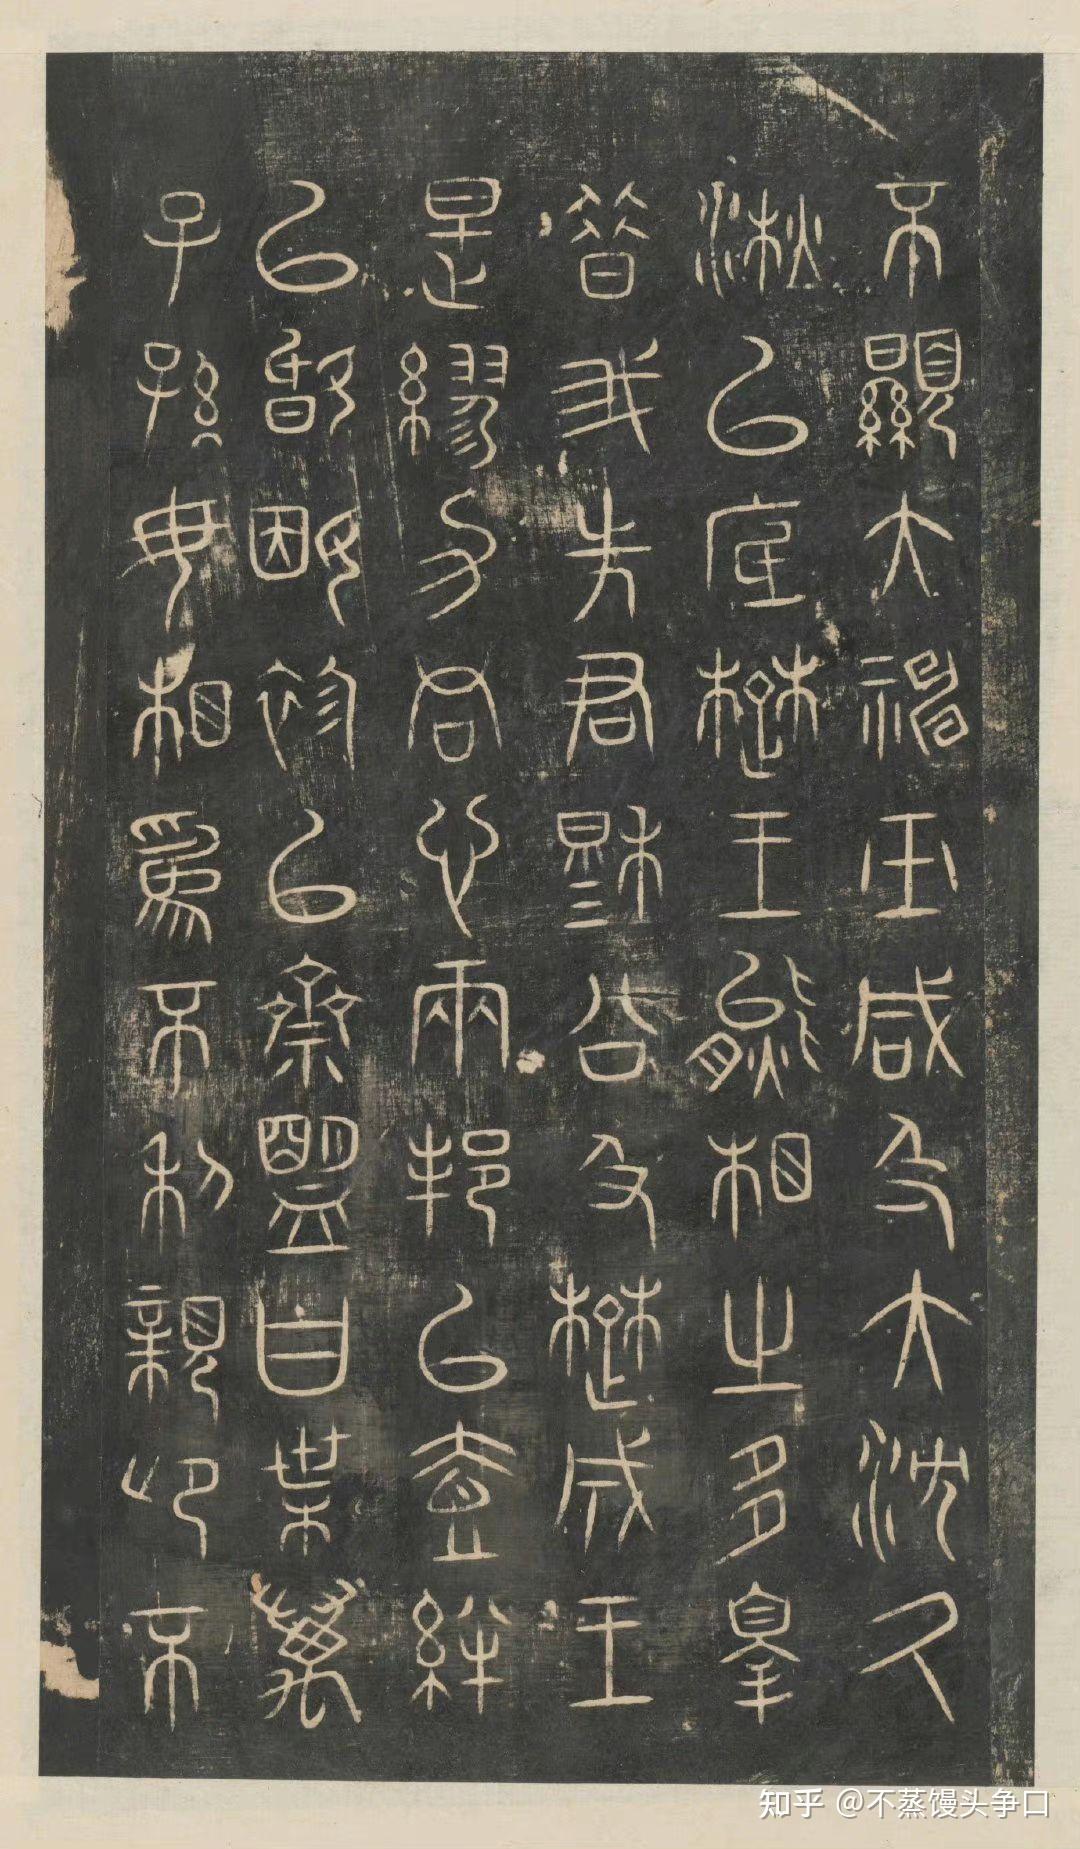 不顯大神巫咸及大沈久
湫以底楚王熊相之多辠
昔我先君穆公及楚成王
是繆力同心兩邦以壹絆
以婚姻袗以齋盟曰枼萬
子孫毋相為不利親卬不
知乎 @不蒸馒头争口